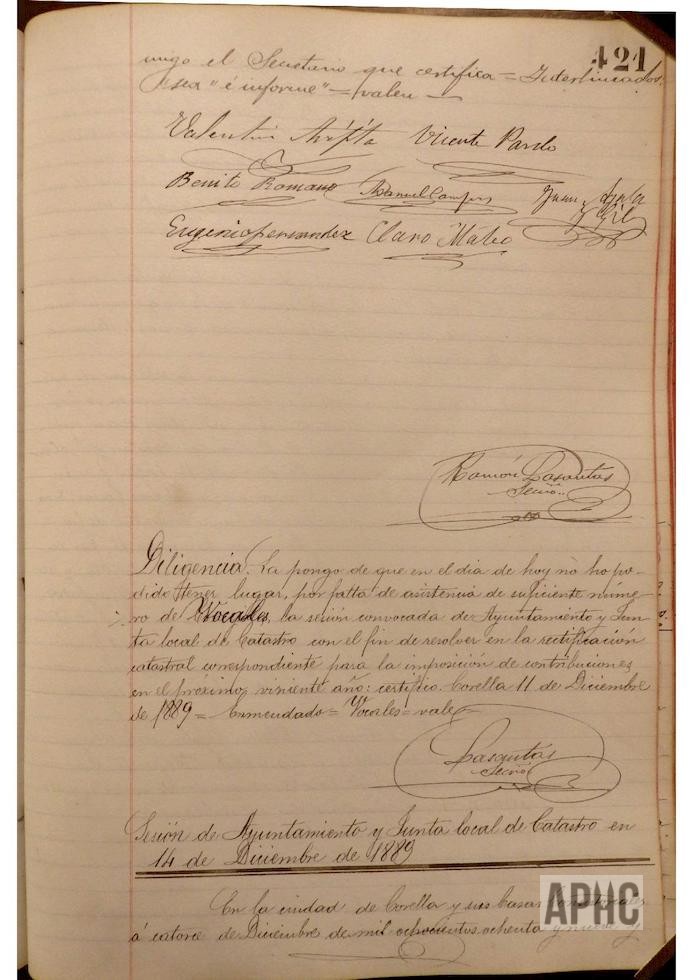 421
migo el Secretario que certifica = Interlineados.
"sea" "é informe" = valen =
Valentin Vicente Pardo
Benito Romano Manuel Campos Juan Ayala
y Gil
Eugenio Fernandez Claro Mateo
Ramón Lasantas
Secrio.
Diligencia. La pongo de que en el dia de hoy nó ha po-
dido tener lugar, por falta de asistencia de suficiente núme-
ro de Vocales, la sesión convocada de Ayuntamiento y Jun-
ta local de Catastro con el fin de resolver en la rectificación
catastral correspondiente para la imposición de contribuciones
en el próximo viniente año: certifico. Corella 11 de Diciembre
de 1889 = Enmendado = Vocales = vale =
Lasantas
Secrio
Sesión de Ayuntamiento y Junta local de Catastro en
14 de Diciembre de 1889
En la ciudad de Corella y sus Casas Consistoriales
á catorce de Diciembre de mil ochocientos ochenta y nueve y
APHC